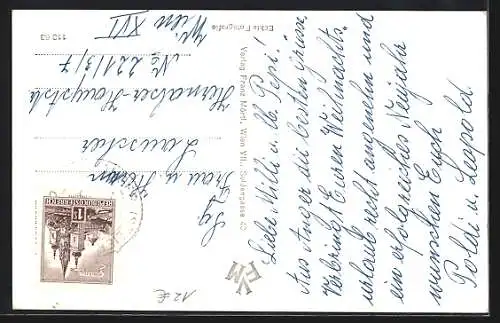 Liebe Milli u. lb. Pepi!
Aus Anger die besten Grüsse,
Verbringt Euren Weihnachts-
urlaub recht angenehm und
ein erfolgreiches Neujahr
wünschen Euch
Poldi u. Leopold.
VFM
Echte Fotografie
Verlag Franz Mörtl, Wien VII., Seidengasse 43
11063
Frau u. Herrn
Lauscher
Hernalser Hauptstr.
No 221/3/7
Wien XVII
REPUBLIK ÖSTERREICH
12 €